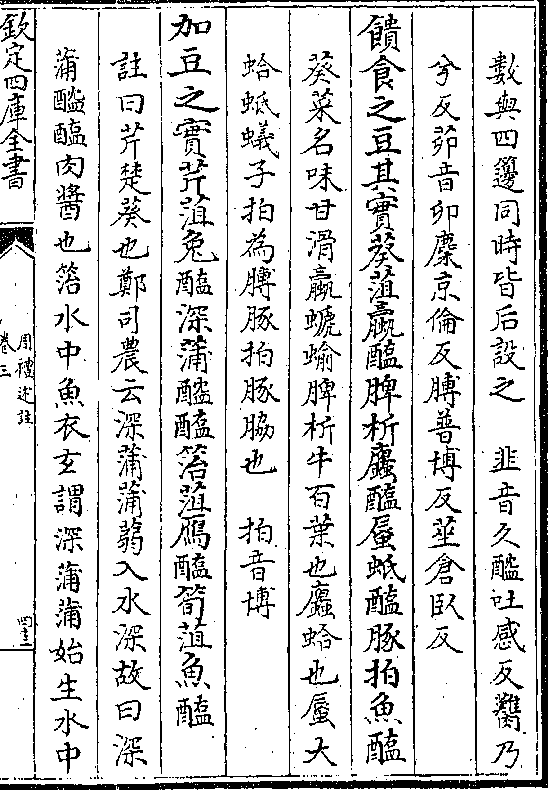 數與四籩同時皆后設之　韭音久醓吐感反臡乃
兮反茆音卯麋京倫反膊普博反莝倉臥反
饋食之豆其實葵菹蠃醢脾析蠯醢蜃蚳醢豚拍魚醢
葵菜名味甘滑蠃螔蝓脾析牛百葉也蠯蛤也蜃大
蛤蚳蟻子拍為膊豚拍豚脇也　拍音博
加豆之實芹菹兔醢深蒲醓醢箈菹鴈醢筍菹魚醢
註曰芹楚葵也鄭司農云深蒲蒲蒻入水深故曰深
蒲醓醢肉醬也箈水中魚衣玄謂深蒲蒲始生水中
欽定四庫全書
周禮述註
卷三